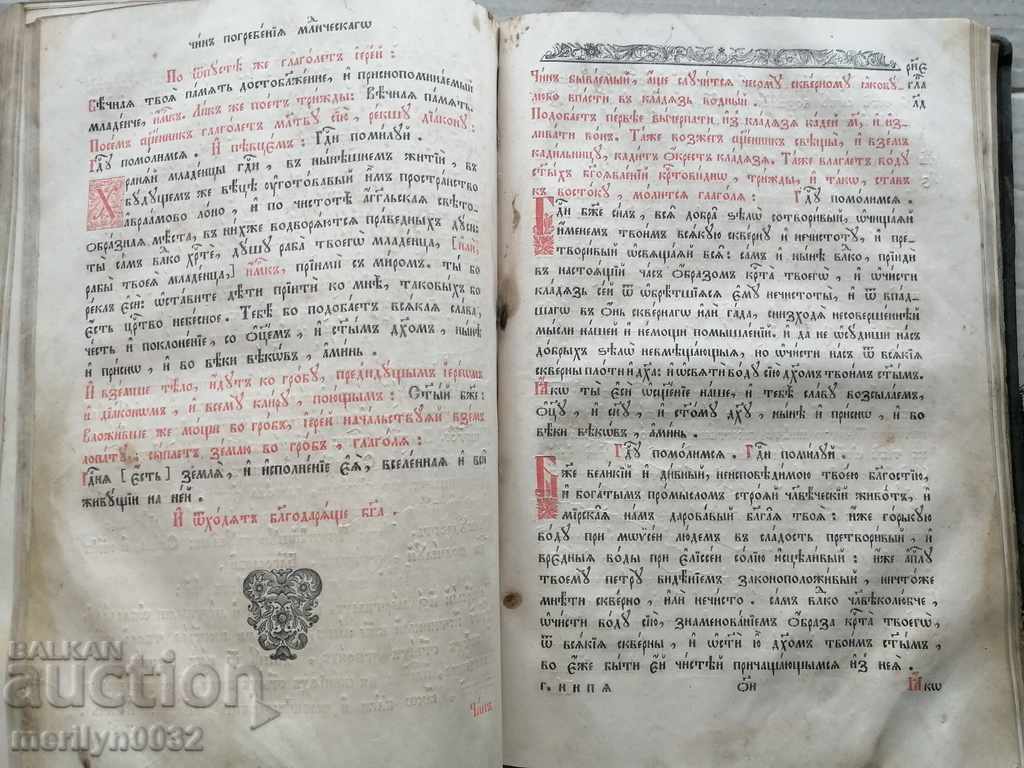 Чи́нъ погребе́нїѧ мл҃и́ческагѡ
По ѿпꙋ́стѣ же глаго́летъ і҆ере́й:
Вѣ́чнаѧ твоѧ̀ па́мѧть достобл҃же́нне, и҆ приснопомина́емый
младе́нче, и҆́мкъ. Ли́къ же пое́тъ три́жды: Вѣ́чнаѧ па́мѧть.
Посе́мъ сщ҃е́нникъ глаго́летъ мл҃твꙋ сїю̀, ре́кшꙋ дїа́конꙋ:
Гдⷭ҇ꙋ помо́лимсѧ. И҆ пѣвце́мъ: Гдⷭ҇и поми́лꙋй.
Хранѧ́й младе́нцы гдⷭ҇и, въ ны́нѣшнемъ житїѝ, въ
бꙋ́дꙋщемъ же вѣ́цѣ ᲂу҆гото́вавый и҆̀мъ простра́нство
а҆враа́мово ло́но, и҆ по чистотѣ̀ а҆́гг҃льскаѧ свѣто-
ѡбра̑знаѧ мѣста̀, въ ни́хже водворѧ́ютсѧ првⷣныхъ дꙋ́си:
ты̀ са́мъ влⷣко хрⷭ҇те, дꙋ́шꙋ раба̀ твоегѡ̀ младе́нца, [и҆лѝ
рабы̀ твоеѧ̀ младе́нца,] и҆́мкъ, прїимѝ съ ми́ромъ. ты́ бо
ре́клъ є҆сѝ: ѡ҆ста́вите дѣ́ти прїитѝ ко мнѣ̀, таковы́хъ бо
є҆́сть црⷭ҇тво небе́сное. Тебѣ́ бо подоба́етъ всѧ́каѧ сла́ва,
че́сть и҆ поклоне́нїе, со ѻ҆ц҃е́мъ, и҆ ст҃ы́мъ дх҃омъ, ны́нѣ
и҆ при́снѡ, и҆ во вѣ́ки вѣкѡ́въ, а҆ми́нь.
И҆ взе́мше тѣ́ло, и҆дꙋ́тъ ко гро́бꙋ, предидꙋ́щымъ і҆ере́ѡмъ
и҆ дїа́конѡмъ, и҆ всемꙋ̀ кли́рꙋ, пою́щымъ: Ст҃ы́й бж҃е:
Вложи́вше же мо́щи во гро́бъ, і҆ере́й нача́льствꙋѧй взе́мъ
лопа́тꙋ, сы́плетъ зе́млю во гро́бъ, глаго́лѧ:
Гдⷭ҇нѧ [є҆́сть] землѧ̀, и҆ и҆сполне́нїе є҆ѧ̀, вселе́ннаѧ и҆ всѝ
живꙋ́щїи на не́й.
И҆ ѿхо́дѧтъ благодарѧ́ще бг҃а.
Чи́нъ
Чи́нъ быва́емый, а҆́ще слꙋчи́тсѧ чесомꙋ̀ скве́рномꙋ ꙗ҆́ковꙋ
лю́бо впа́сти въ кла́дѧзь во́дный.
Подоба́етъ пе́рвѣе вы́черпати и҆з̾ кла́дѧзѧ каде́й м҃, и҆ и҆з̾-
лива́ти во́нъ. Та́же возже́гъ сщ҃е́нникъ свѣщы̀, и҆ взе́мъ
кади́льницꙋ, кади́тъ ѡ҆́крестъ кла́дѧзѧ. Та́же влага́етъ во́дꙋ
ст҃ы́хъ бг҃оѧвле́нїй крⷭ҇тови́днѡ, три́жды, и҆ та́кѡ, ста́въ
къ восто́кꙋ, мо́литсѧ глаго́лѧ: Гдⷭ҇ꙋ помо́лимсѧ.
Гдⷭ҇и бж҃е си́лъ, всѧ̑ добра̀ ѕѣлѡ̀ сотвори́вый, ѡ҆чища́ѧй
и҆́менемъ твои́мъ всѧ́кꙋю скве́рнꙋ и҆ нечистотꙋ̀, и҆ пре-
твори́вый ѡ҆свѧща́ѧй всѧ̑: са́мъ и҆ ны́нѣ влⷣко, прїидѝ
въ настоѧ́щїй ча́съ ѡ҆́бразомъ крⷭ҇та̀ твоегѡ̀, и҆ ѡ҆чи́сти
кла́дѧзь се́й ѿ ѡ҆брѣ́тшїѧсѧ є҆мꙋ̀ нечистоты̀, и҆ ѿ впа́д-
шагѡ въ ѻ҆́нь скве́рнагѡ и҆лѝ га́да, снизходѧ̀ несоверше́ннѣй
мы́сли на́шей и҆ не́мощи помышле́нїй. и҆ да не ѡ҆сꙋ́диши на́съ
до́брыхъ ѕѣлѡ̀ невмѣща́ющыѧ, но ѡ҆чи́сти на́съ ѿ всѧ́кїѧ
скве́рны пло́ти и҆ дх҃а: и҆ ѡ҆свѧтѝ во́дꙋ сїю̀ дх҃омъ твои́мъ ст҃ы́мъ.
Ꙗ҆́кѡ ты̀ є҆сѝ ѡ҆сщ҃е́нїе на́ше, и҆ тебѣ̀ сла́вꙋ возсыла́емъ,
ѻ҆ц҃ꙋ̀, и҆ сн҃ꙋ, и҆ ст҃о́мꙋ дх҃ꙋ, ны́нѣ и҆ при́снѡ, и҆ во
вѣ́ки вѣкѡ́въ, а҆ми́нь.
Гдⷭ҇ꙋ помо́лимсѧ. Гдⷭ҇и поми́лꙋй.
Бж҃е вели́кїй и҆ ди́вный, неисповѣди́мою твое́ю бл҃гостїю,
и҆ бога́тымъ про́мысломъ стро́ѧй чл҃вѣ́ческїй живо́тъ, и҆
мїрска̑ѧ на́мъ дарова́вый бл҃га̑ѧ твоѧ̑: и҆́же го́рькꙋю
во́дꙋ при мѡѷсе́и лю́демъ въ сла́дость претвори́вый, и҆
врє́дныѧ во́ды при є҆лїссе́и со́лїю и҆сцѣли́вый: и҆́же а҆пⷭ҇лꙋ
твоемꙋ̀ петрꙋ̀ видѣ́нїемъ законоположи́вый, ничто́же
мнѣ́ти скве́рно, и҆лѝ нечи́сто. са́мъ влⷣко чл҃вѣколю́бче,
ѡ҆чи́сти во́дꙋ сїю̀, зна́менованїемъ ѡ҆́браза крⷭ҇та̀ твоегѡ̀,
ѿ всѧ́кїѧ скве́рны, и҆ ѡ҆ст҃ѝ ю҆̀ дх҃омъ твои́мъ ст҃ы́мъ,
во є҆́же бы́ти є҆́й чи́стѣй причаща́ющымсѧ и҆з̾ неѧ̀.
Ꙗ҆́кѡ
BALKAN
auction
merilyn0032